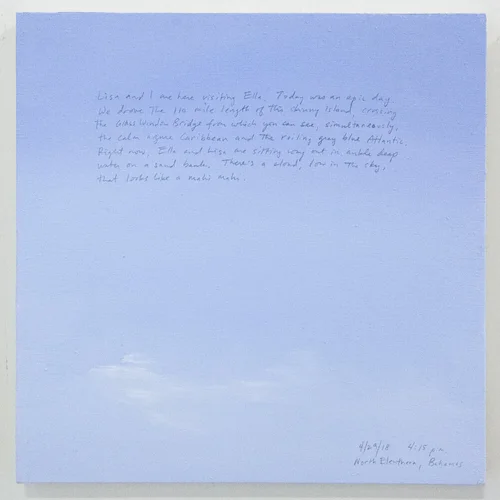 Lisa and I are here visiting Ella. Today was an epic day.
We drove the 110 mile length of this skinny Island, crossing
the Glass Window Bridge from which you can see, simultaneously,
the calm aqua Caribbean and the roiling gray blue Atlantic.
Right now, Ella and Lisa are sitting way out in ankle deep
water on a sand bank. There's a cloud, low in the sky,
that looks like a
4/29/18 4:15 pm
North Eleuthera, Bahamas